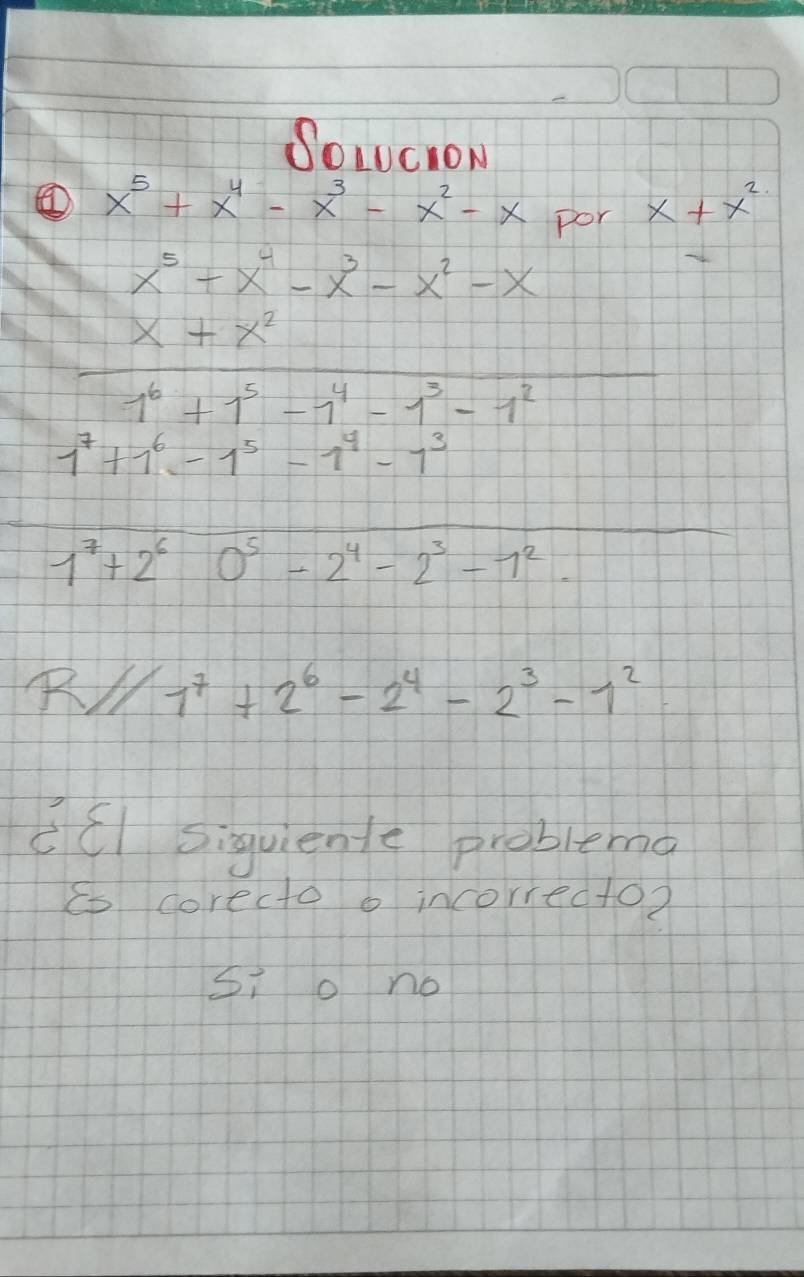 SOLUCION
① x⁵ + x⁴ - x³ - x² - x por x + x².
x⁵ - x⁴ - x³ - x² - x
x + x²
1⁶ + 1⁵ - 1⁴ - 1³ - 1²
1⁷ + 1⁶ - 1⁵ - 1⁴ - 1³
1⁷ + 2⁶ 0⁵ - 2⁴ - 2³ - 1².
R// 1⁷ + 2⁶ - 2⁴ - 2³ - 1²
¿El siguiente problema
Es corecto o incorrecto?
Si o no